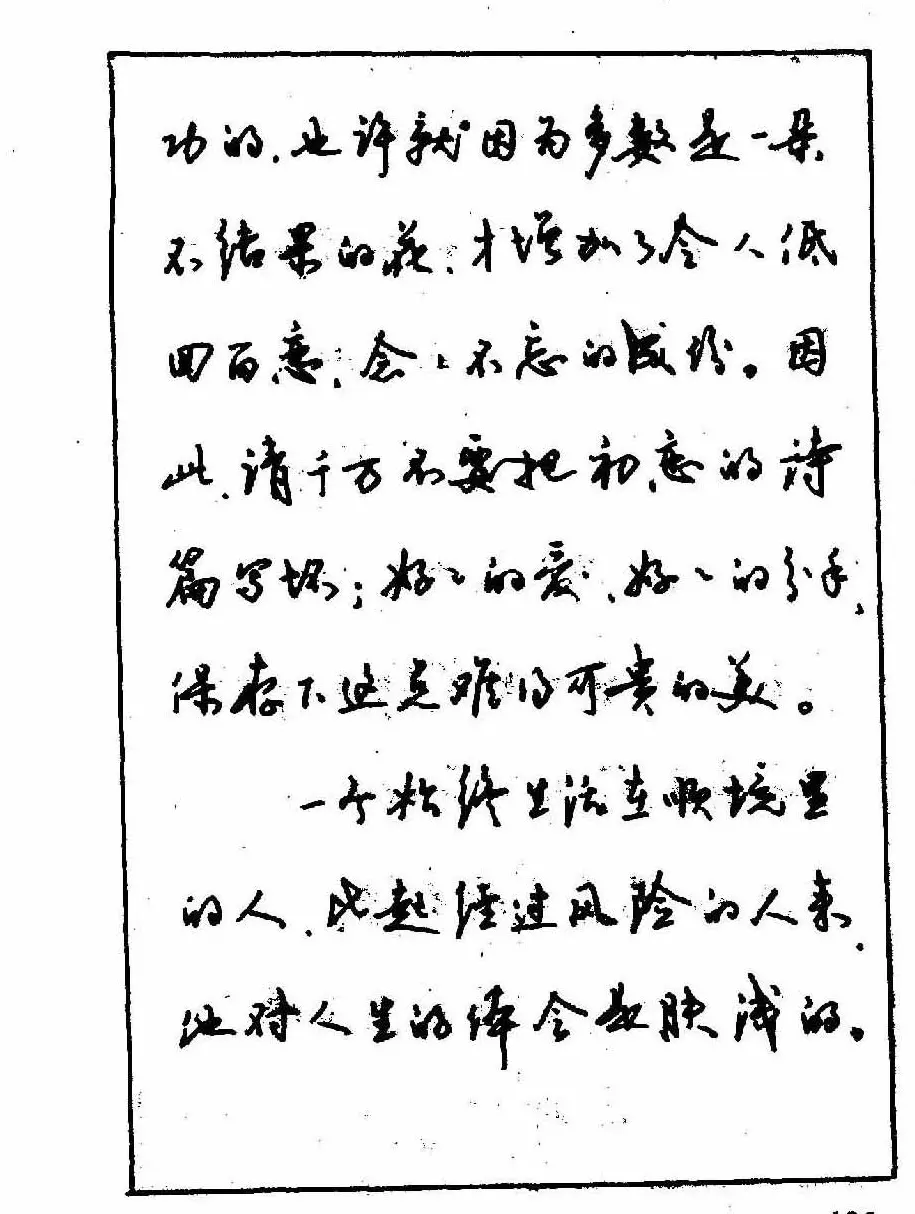 功的,也许就因为多数是一朵
不结果的花,才增加了令人低
回百恋,念念不忘的成份。因
此,请千万不要把初恋的诗
篇写坏;好好的爱,好好的分手,
保存下这点难得可贵的美。
一个始终生活在顺境里
的人,比起经过风险的人来,
他对人生的体会是肤浅的。